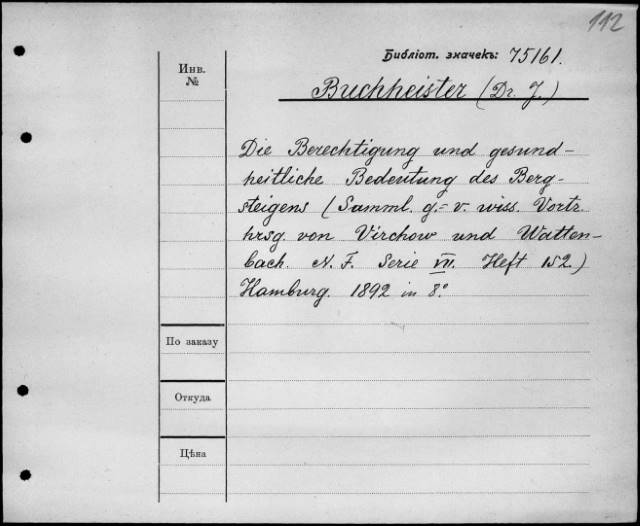 112
Библіот. значекъ: 75161.
Инв.
№
Buchheister (Dr. J.)
Die Berechtigung und gesund-
heitliche Bedeutung des Berg-
steigens (Samml. g.-v. wiss. Vortr.
hrsg. von Virchow und Watten-
bach. N. F. Serie VII. Heft 152.)
Hamburg. 1892 in 8.°
По заказу
Откуда
Цѣна